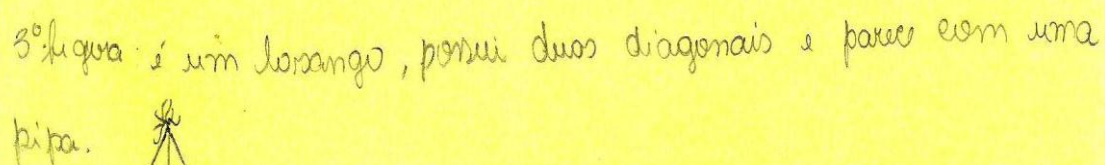 3º figura é um losango, possui duas diagonais e parece com uma
pipa.